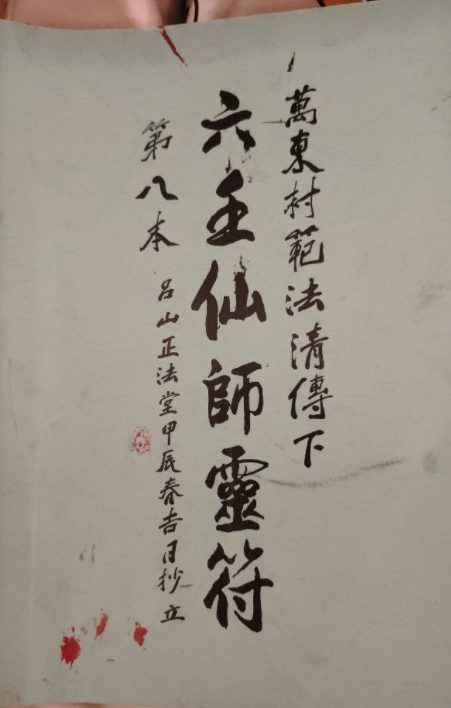 萬東村範法清傳下
六壬仙師靈符
第八本
呂山正法堂甲辰春吉日抄立